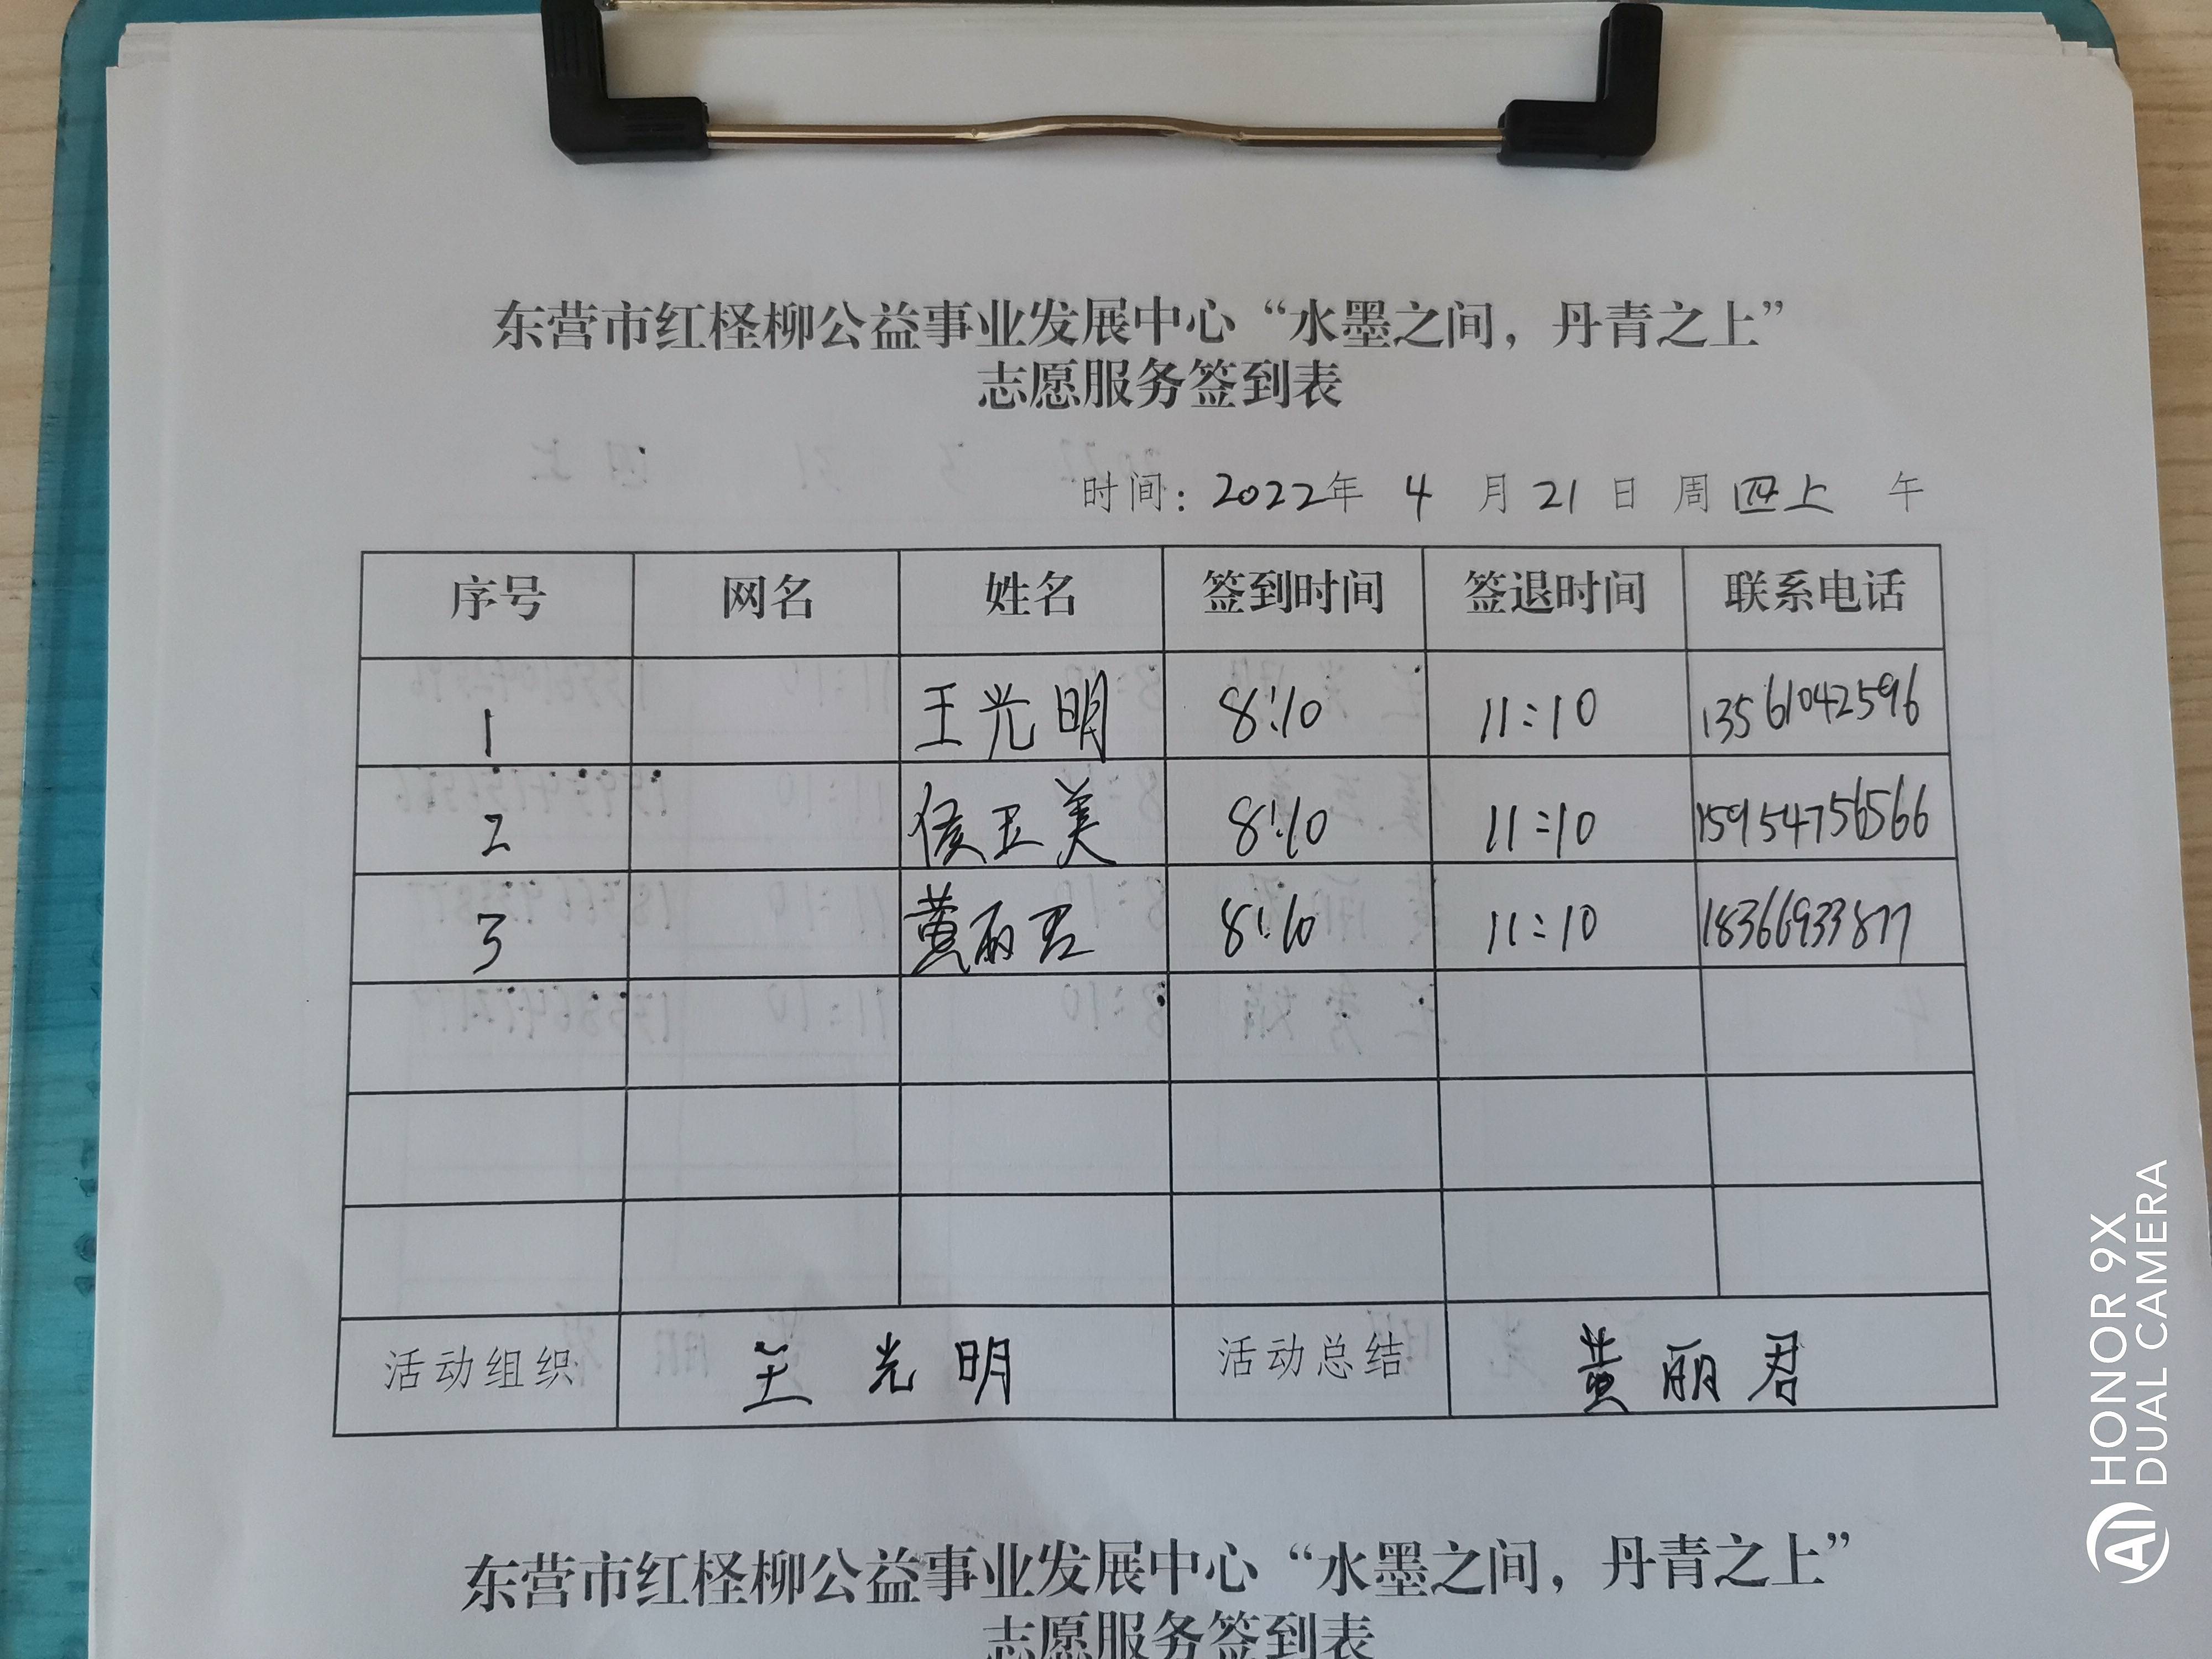 东营市红柽柳公益事业发展中心“水墨之间，丹青之上”
志愿服务签到表
时间：2022年 4 月 21 日 周四上 午
序号 网名 姓名 签到时间 签退时间 联系电话
1 王光明 8:10 11:10 13561042596
2 侯卫美 8:10 11:10 15954756566
3 黄丽君 8:10 11:10 18366933877
活动组织 王光明 活动总结 黄丽君
东营市红柽柳公益事业发展中心“水墨之间，丹青之上”
志愿服务签到表
HONOR 9X
DUAL CAMERA
AI